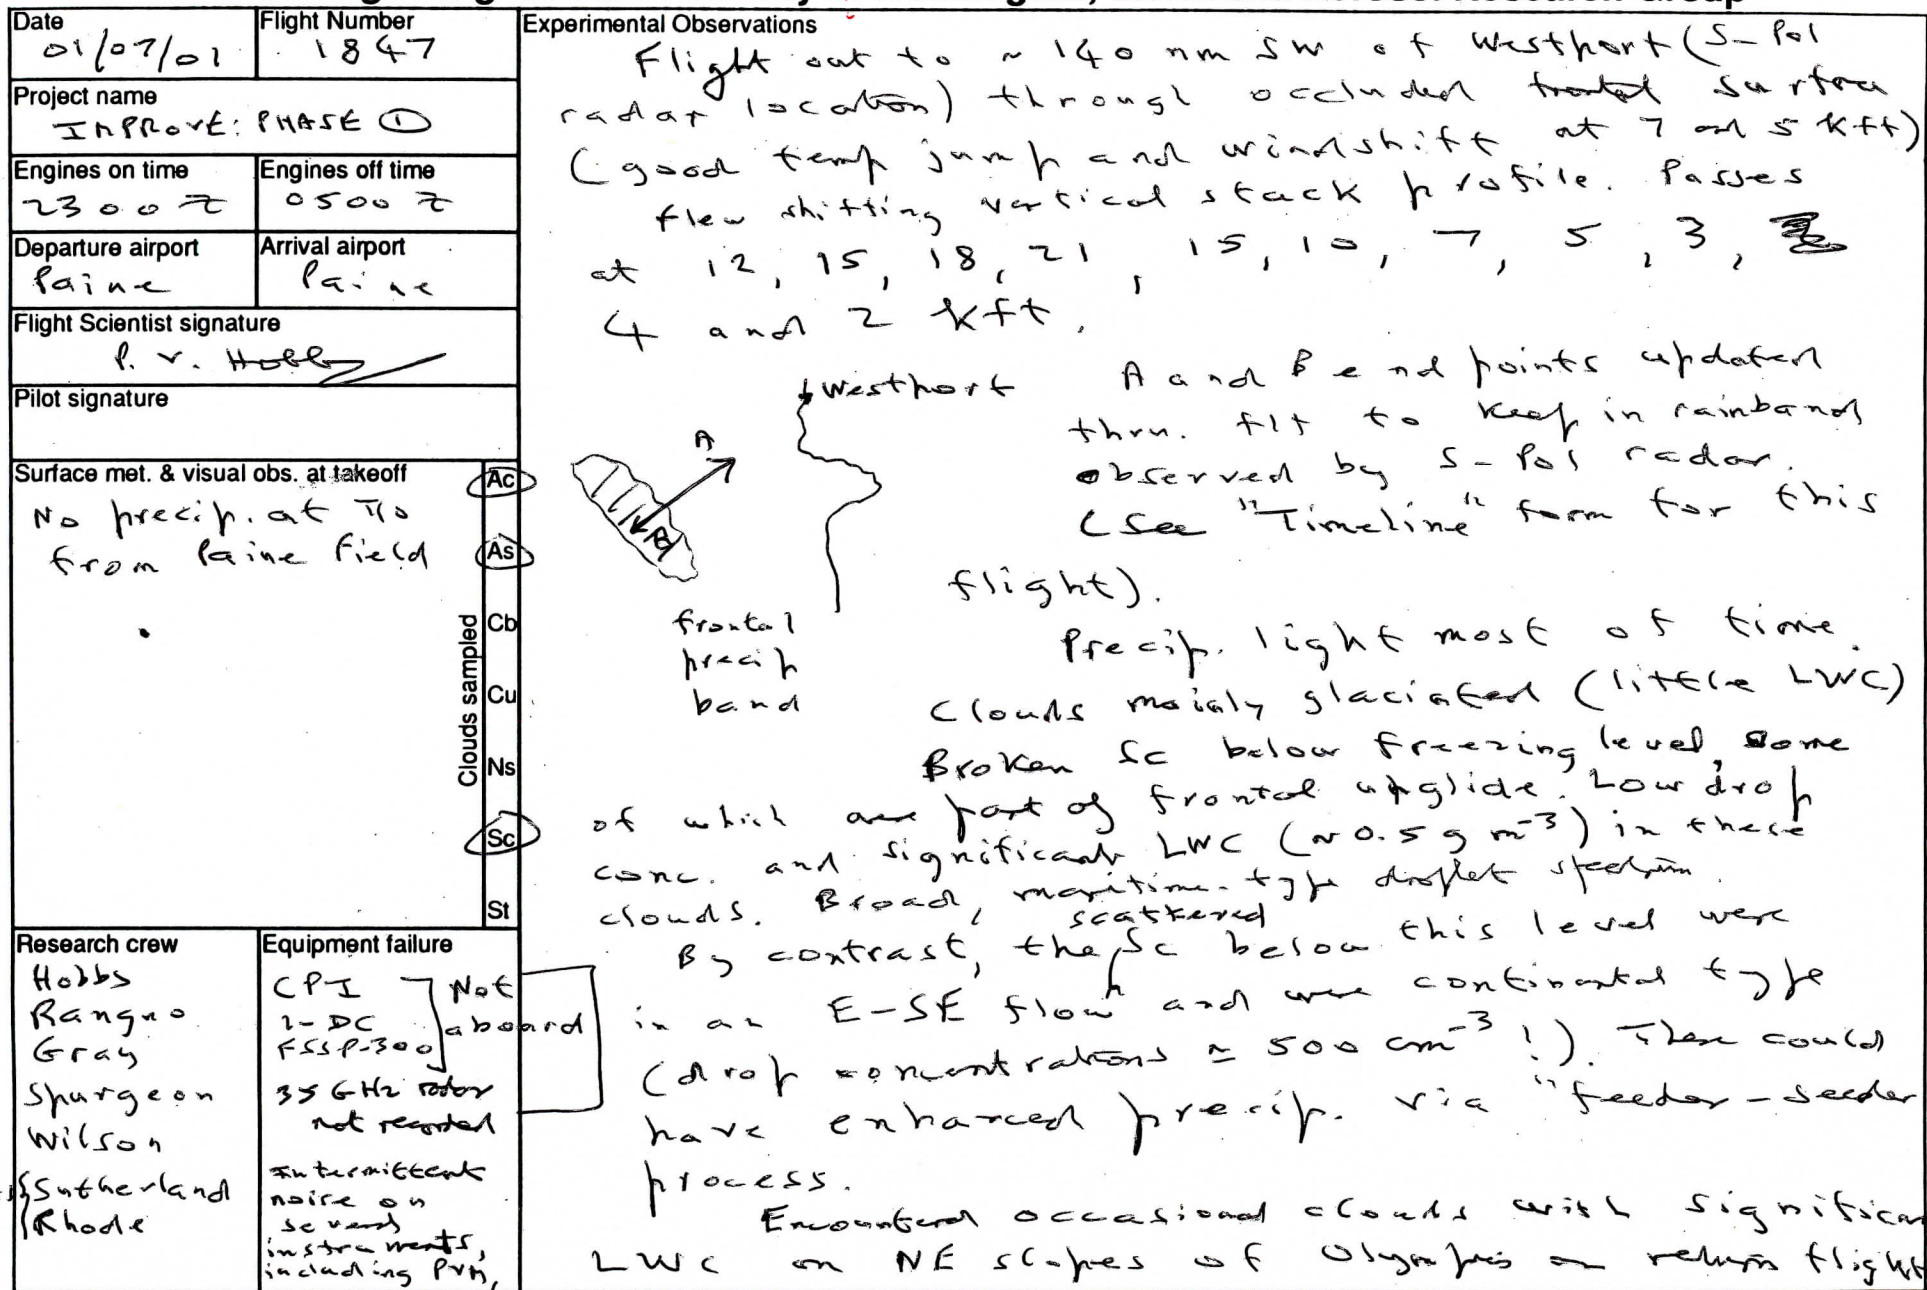 Date
01/07/01
Flight Number
1847
Project name
IMPROVE: PHASE ①
Engines on time
2300 Z
Engines off time
0500 Z
Departure airport
Paine
Arrival airport
Paine
Flight Scientist signature
P. V. Hobbs
Pilot signature
Surface met. & visual obs. at takeoff
No precip. at T/O
from Paine Field
Clouds sampled
Ac
As
Cb
Cu
Ns
Sc
St
Research crew
Hobbs
Rangno
Gray
Spurgeon
Wilson
Sutherland
Rhode
Equipment failure
CPI
2-DC
FSSP-300
Not
aboard
35 GHz radar
not recorded
Intermittent
noise on
several
instruments,
including PVM,
Experimental Observations
Flight out to ~ 140 nm SW of Westport (S-Pol
radar location) through occluded frontal surface
(good temp jump and windshift at 7 and 5 kft)
flew shifting vertical stack profile. Passes
at 12, 15, 18, 21, 15, 10, 7, 5, 3,
4 and 2 kft.
Westport
A
B
frontal
precip
band
A and B end points updated
thru. flt to keep in rainband
observed by S-Pol radar.
(See "Timeline" form for this
flight).
Precip. light most of time.
Clouds mainly glaciated (little LWC)
Broken Sc below freezing level, some
of which are part of frontal upglide. Low drop
conc. and significant LWC (~ 0.5 g m-3) in these
clouds. Broad, maritime-type droplet spectrum.
By contrast, the scattered Sc below this level were
in an E-SE flow and were continental type
(drop concentrations ≈ 500 cm-3 !). These could
have enhanced precip. via "feeder-seeder
process.
Encountered occasional clouds with significan
LWC on NE slopes of Olympics on return flight